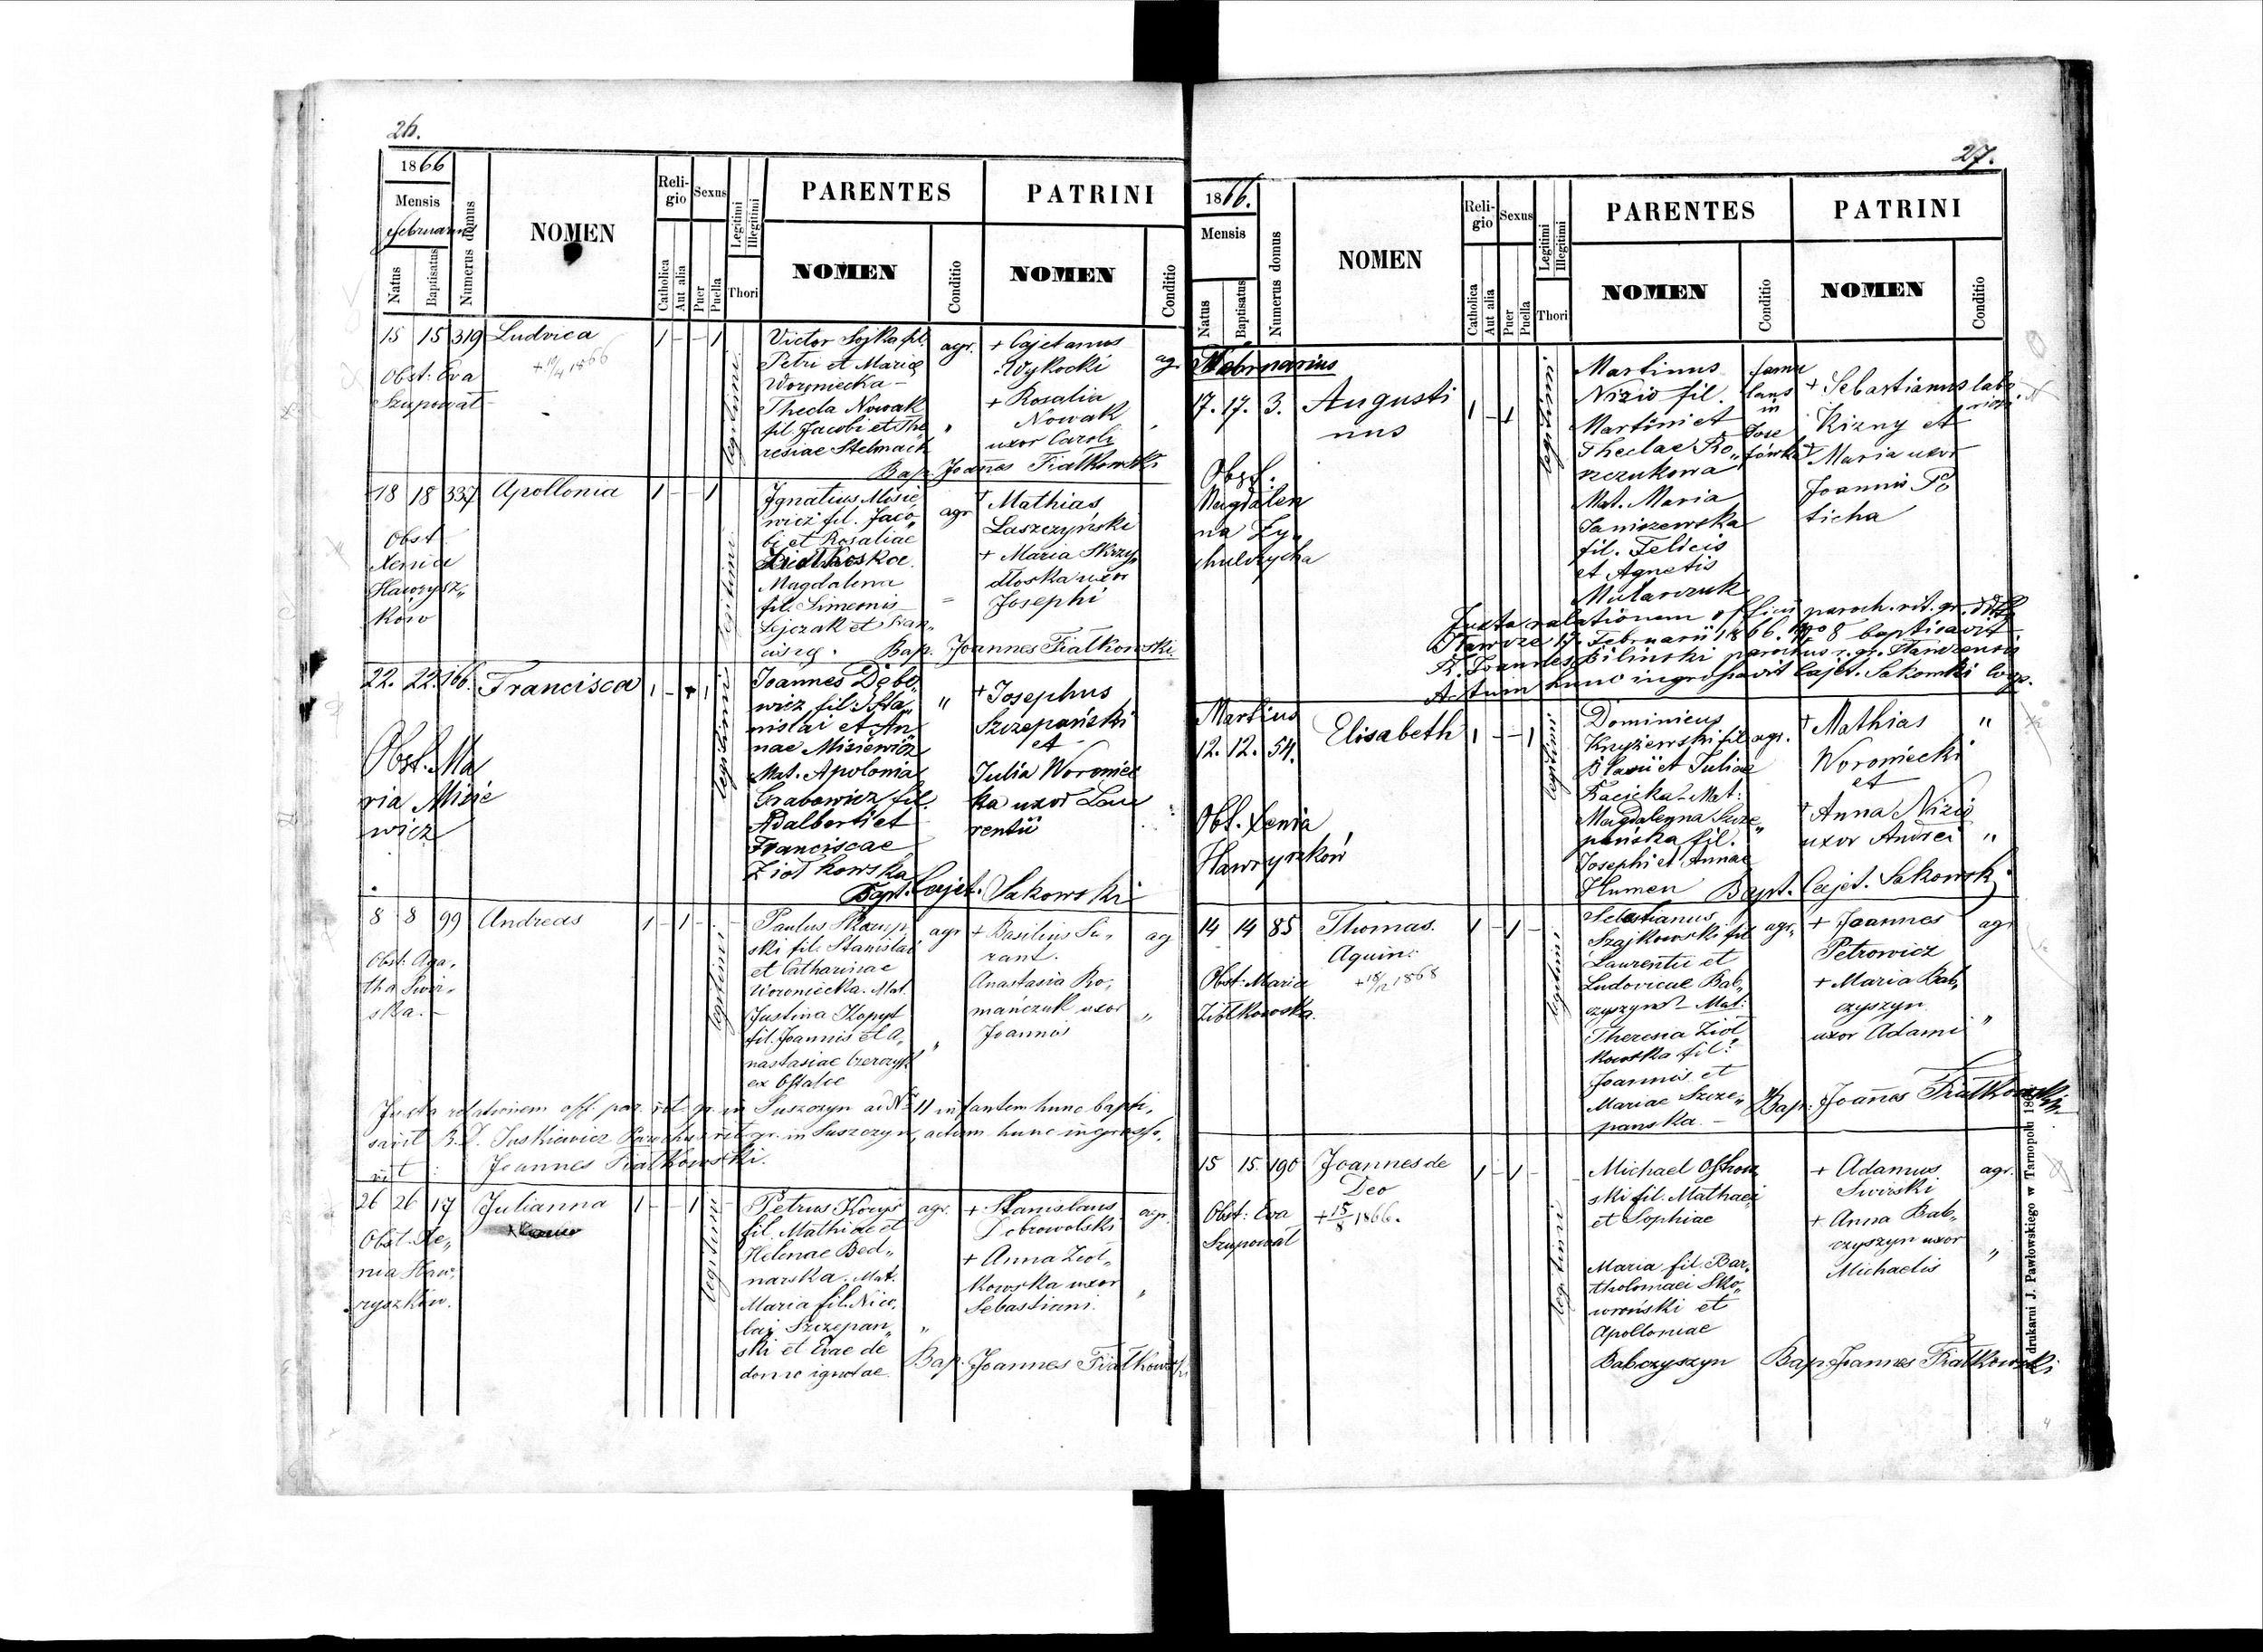 26.
1866
Mensis
Februarius
Natus
Baptisatus
Numerus domus
NOMEN
Religio
Catholica
Aut alia
Sexus
Puer
Puella
Legitimi
Illegitimi
Thori
PARENTES
NOMEN
Conditio
PATRINI
NOMEN
Conditio
15 15 319 Ludvica 1 - - 1
+ 19/4 1866
Obst: Eva
Szupowat
legitimi
Victor Sojka fil.
Petri et Mariae
Woroniecka -
Thecla Nowak
fil. Jacobi et The
resiae Stelmach
agr.
"
+ Cajetanus
Wykocki
+ Rosalia
Nowak
uxor Caroli
ag
Bap. Joannes Fiałkowski
18 18 337 Apollonia 1 - - 1
Obst
Xenia
Hawrysz„
ków
legitimi
Ignatius Misie
wicz fil. Jaco„
bi et Rosaliae
Magdalena
fil. Simeonis
Sejczak et Fran„
cis
agr
=
+ Mathias
Laszczyński
+ Maria Skrzy„
dłoska uxor
Josephi
Bap. Joannes Fiałkowski.
22. 22. 166. Francisca 1 - 1
Obst. Ma
ria Misie
wicz
legitimi
Joannes Debo„
wicz fil: Sta„
nislai et An
nae Misiewicz
Mat. Apolonia
Grabowicz fil.
Adalberti et
Franciscae
Ziołkowska
"
+ Josephus
Szczepański
et
Julia Woroniec
ka uxor Lau
rentii
Bapt. Cajet. Sakowski
8 8 99 Andreas 1 - 1 -
Obst: Aga„
tha Swir„
ska. -
legitimi
Paulus Skarup„
ski fil. Stanislai
et Catharinae
Woroniecka. Mat.
Justina Kopyt
fil. Joannis et A„
nastasiae
agr
"
+ Basilius Su„
rant.
Anastasia Ro„
mańczuk uxor
Joannis
ag
"
Juxta relationem off. par. rit. gr. in Suszczyn ad No 11 infantem hunc bapti„
savit R.D. Juskiewicz Parochus rit gr. in Suszczyn, actum hunc ingrossa„
vit : Joannes Fiałkowski.
26 26 17 Julianna 1 - - 1 -
Obst. Xe„
nia Haw„
ryszków.
legitimi
Petrus Korys
fil. Mathiae et
Helenae Bed„
narska. Mat.
Maria fil. Nico„
lai Szczepan„
ski et Evae de
domo ignotae.
agr.
"
+ Stanislaus
Dobrowolski
+ Anna Ziół„
kowska uxor
Sebastiani.
agr.
"
Bap. Joannes Fiałkowski
27.
1866.
Mensis
Natus
Baptisatus
Numerus domus
NOMEN
Religio
Catholica
Aut alia
Sexus
Puer
Puella
Legitimi
Illegitimi
Thori
PARENTES
NOMEN
Conditio
PATRINI
NOMEN
Conditio
Februarius
17. 17. 3. Augusti
nus
1 - 1
Obst:
Magdalen
na Zy„
chulczycha
legitimi
Martinus
Nizio fil.
Martini et
Theclae Ro„
szczukowa
Mat. Maria
Janiszewska
fil. Felicis
et Agnetis
Mularczuk
famu
lans
in
Jose
fówka
+ Sebastianus
Kizny et
+ Maria uxor
Joannis Po
ticha
Juxta relationem officii paroch. rit. gr.
17 Februarii 1866. No 8 baptisavit
R. Joannes Biliński parochus r. gr.
Actum hunc ingrossavit Cajet. Sakowski
Martius
12. 12. 54. Elisabeth 1 - - 1
Obst. Xenia
Hawryszków
legitimi
Dominicus
Knyżewski fil
Blasii et Juliae
Kacicka - Mat:
Magdalena Szcze„
pańska fil.
Josephi et Annae
Humen
agr.
+ Mathias
Woroniecki
et
+ Anna Nizio
uxor Andrei
"
"
Bapt. Cajet. Sakowski
14 14 85 Thomas.
Aquin:
+ 18/12 1868
1 - 1 -
Obst: Maria
Ziółkowska.
legitimi
Sebastianus
Szajkowski fil
Laurentii et
Ludovicae Bab„
czyszyn - Mat:
Theresia Ziół
kowska fil:
Joannis et
Mariae Szcze„
panska. -
agr.
+ Joannes
Petrowicz
+ Maria Bab„
czyszyn
uxor Adami
agr
"
Bap: Joannes Fiałkowski
15 15. 190 Joannes de
Deo
+ 15/8 1866.
1 - 1 -
Obst: Eva
Szupowat
legitimi
Michael Ostrow
ski fil. Mathaei
et Sophiae
Maria fil. Bar„
tholomaei Sko„
wroński et
Apolloniae
Babczyszyn
+ Adamus
Swirski
+ Anna Bab„
czyszyn uxor
Michaelis
agr.
"
Bap. Joannes Fiałkowski
drukarni J. Pawłowskiego w Tarnopolu